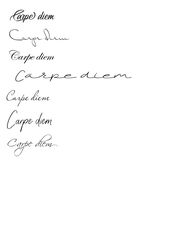 Carpe diem
Carpe diem
Carpe diem
Carpe diem
Carpe diem
Carpe diem
Carpe diem